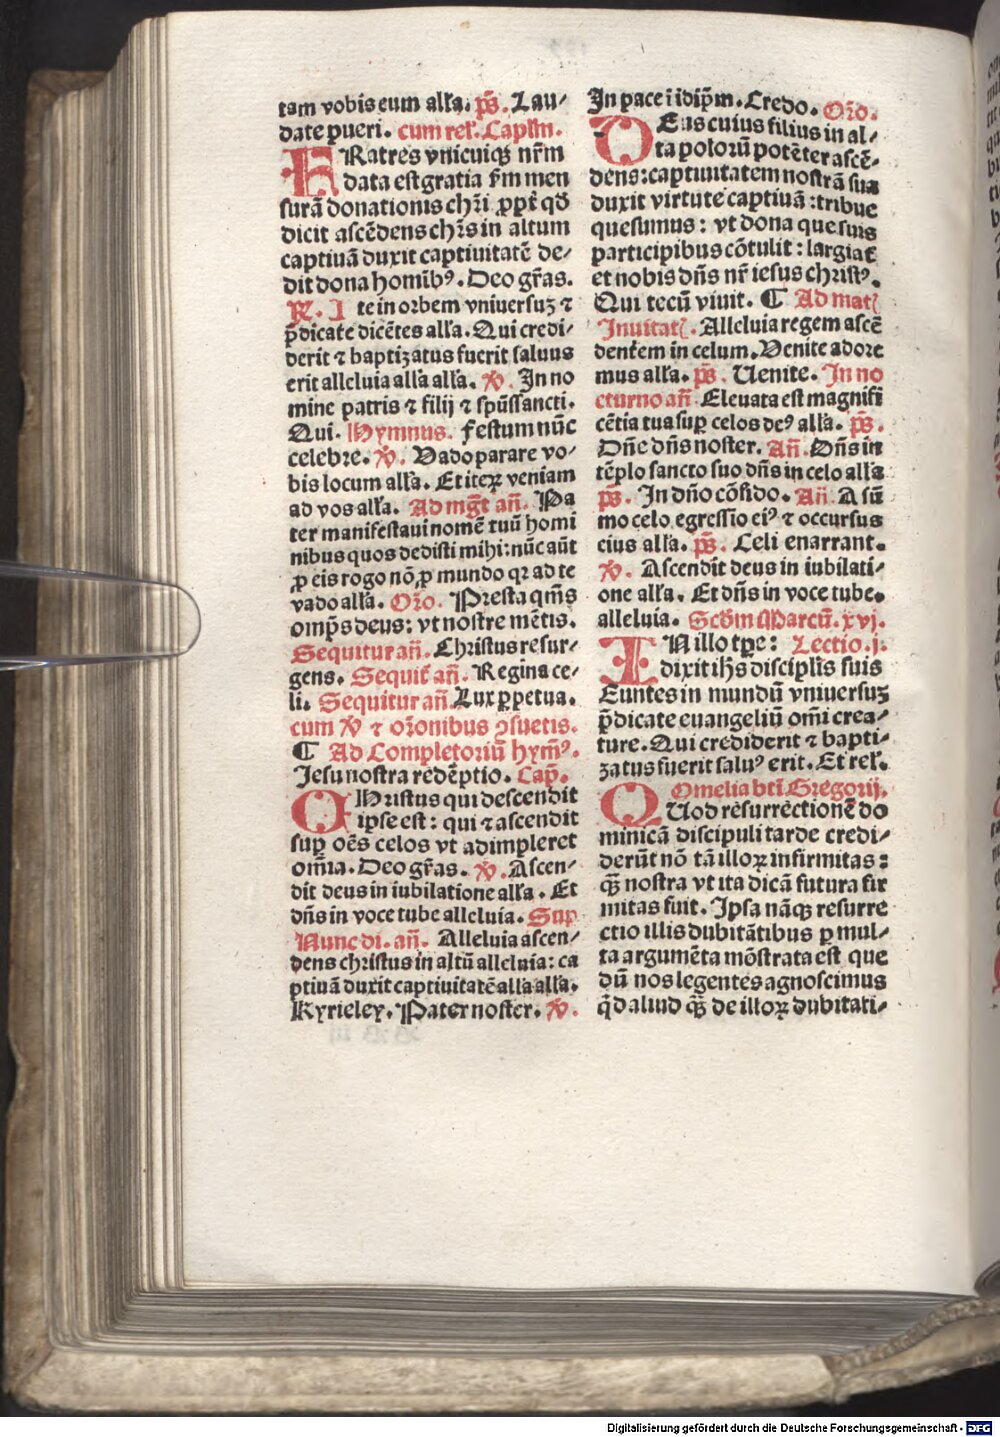 tam vobis eum alľa. pš. Lau/
date pueri. cum rel'. Caplm̄.
FRatres vnicuiqꝫ nr̄m
data est gratia ẜm men
surā donationis chr̄i ꝓpt̄ qd̄
dicit ascēdens chr̄s in altum
captiuā duxit captiuitatē de/
dit dona homībꝰ. Deo gr̄as.
℟. Ite in orbem vniuersuꝫ ⁊
p̄dicate dicētes alľa. Qui credi/
derit ⁊ baptizatus fuerit saluus
erit alleluia alľa alľa. ℣. In no
mine patris ⁊ filij ⁊ spūssancti.
Qui. Hymnus. Festum nūc
celebre. ℣. Vado parare vo/
bis locum alľa. Et iteꝝ veniam
ad vos alľa. Ad mgt̄ an̄. Pa
ter manifestaui nomē tuū homi
nibus quos dedisti mihi: nūc aūt
ꝓ eis rogo nō ꝓ mundo qꝛ ad te
vado alľa. Oꝛo. Presta qm̄s
omp̄s deus: vt nostre mētis.
Sequitur an̄. Christus resur/
gens. Sequit̄ an̄. Regina ce/
li. Sequitur an̄. Lux ꝑpetua.
cum ℣ ⁊ oꝛonibus ꝯsuetis.
¶ Ad Completoriū hym̄ꝰ.
Jesu nostra redēptio. Cap̄.
CHristus qui descendit
ipse est: qui ⁊ ascendit
suꝑ oēs celos vt adimpleret
om̄ia. Deo gr̄as. ℣. Ascen/
dit deus in iubilatione alľa. Et
dn̄s in voce tube alleluia. Sup
Nunc di. an̄. Alleluia ascen/
dens christus in altū alleluia: ca
ptiuā duxit captiuitatē alľa alľa.
Kyrieley. Pater noster. ℣.
In pace ī idip̄m. Credo. Oꝛo.
DEus cuius filius in al/
ta poloꝛū potēter ascē/
dens: captiuitatem nostrā sua
duxit virtute captiuā: tribue
quesumus: vt dona que suis
participibus cōtulit: largiat̄
et nobis dn̄s nr̄ iesus christꝰ.
Qui tecū viuit. ¶ Ad mat̄
Inuitat̄. Alleluia regem ascē
dentem in celum. Venite adore
mus alľa. pš. Uenite. In no
cturno an̄ Eleuata est magnifi
cētia tua suꝑ celos deꝰ alľa. pš.
Dn̄e dn̄s noster. An̄. Dn̄s in
tēplo sancto suo dn̄s in celo alľa
pš. In dn̄o cōfido. An̄. A sū
mo celo egressio eiꝰ ⁊ occursus
eius alľa. pš. Celi enarrant.
℣. Ascendit deus in iubilati/
one alľa. Et dn̄s in voce tube.
alleluia. Scd̄m Marcū. xvj.
IN illo tꝑe: Lectio. j.
dixit ih̄s discipl̄is suis
Euntes in mundū vniuersuꝫ
p̄dicate euangeliū om̄i crea/
ture. Qui crediderit ⁊ bapti/
zatus fuerit saluꝰ erit. Et rel'.
Omelia bt̄i Gregorij.
QUod resurrectionē do
minicā discipuli tarde credi/
derūt nō tā illoꝝ infirmitas:
qꝫ̄ nostra vt ita dicā futura fir
mitas fuit. Ipsa nāqꝫ resurre
ctio illis dubitātibus ꝑ mul/
ta argumēta mōstrata est que
dū nos legentes agnoscimus
qd̄ aliud qꝫ̄ de illoꝝ dubitati/
Digitalisierung gefördert durch die Deutsche Forschungsgemeinschaft - DFG